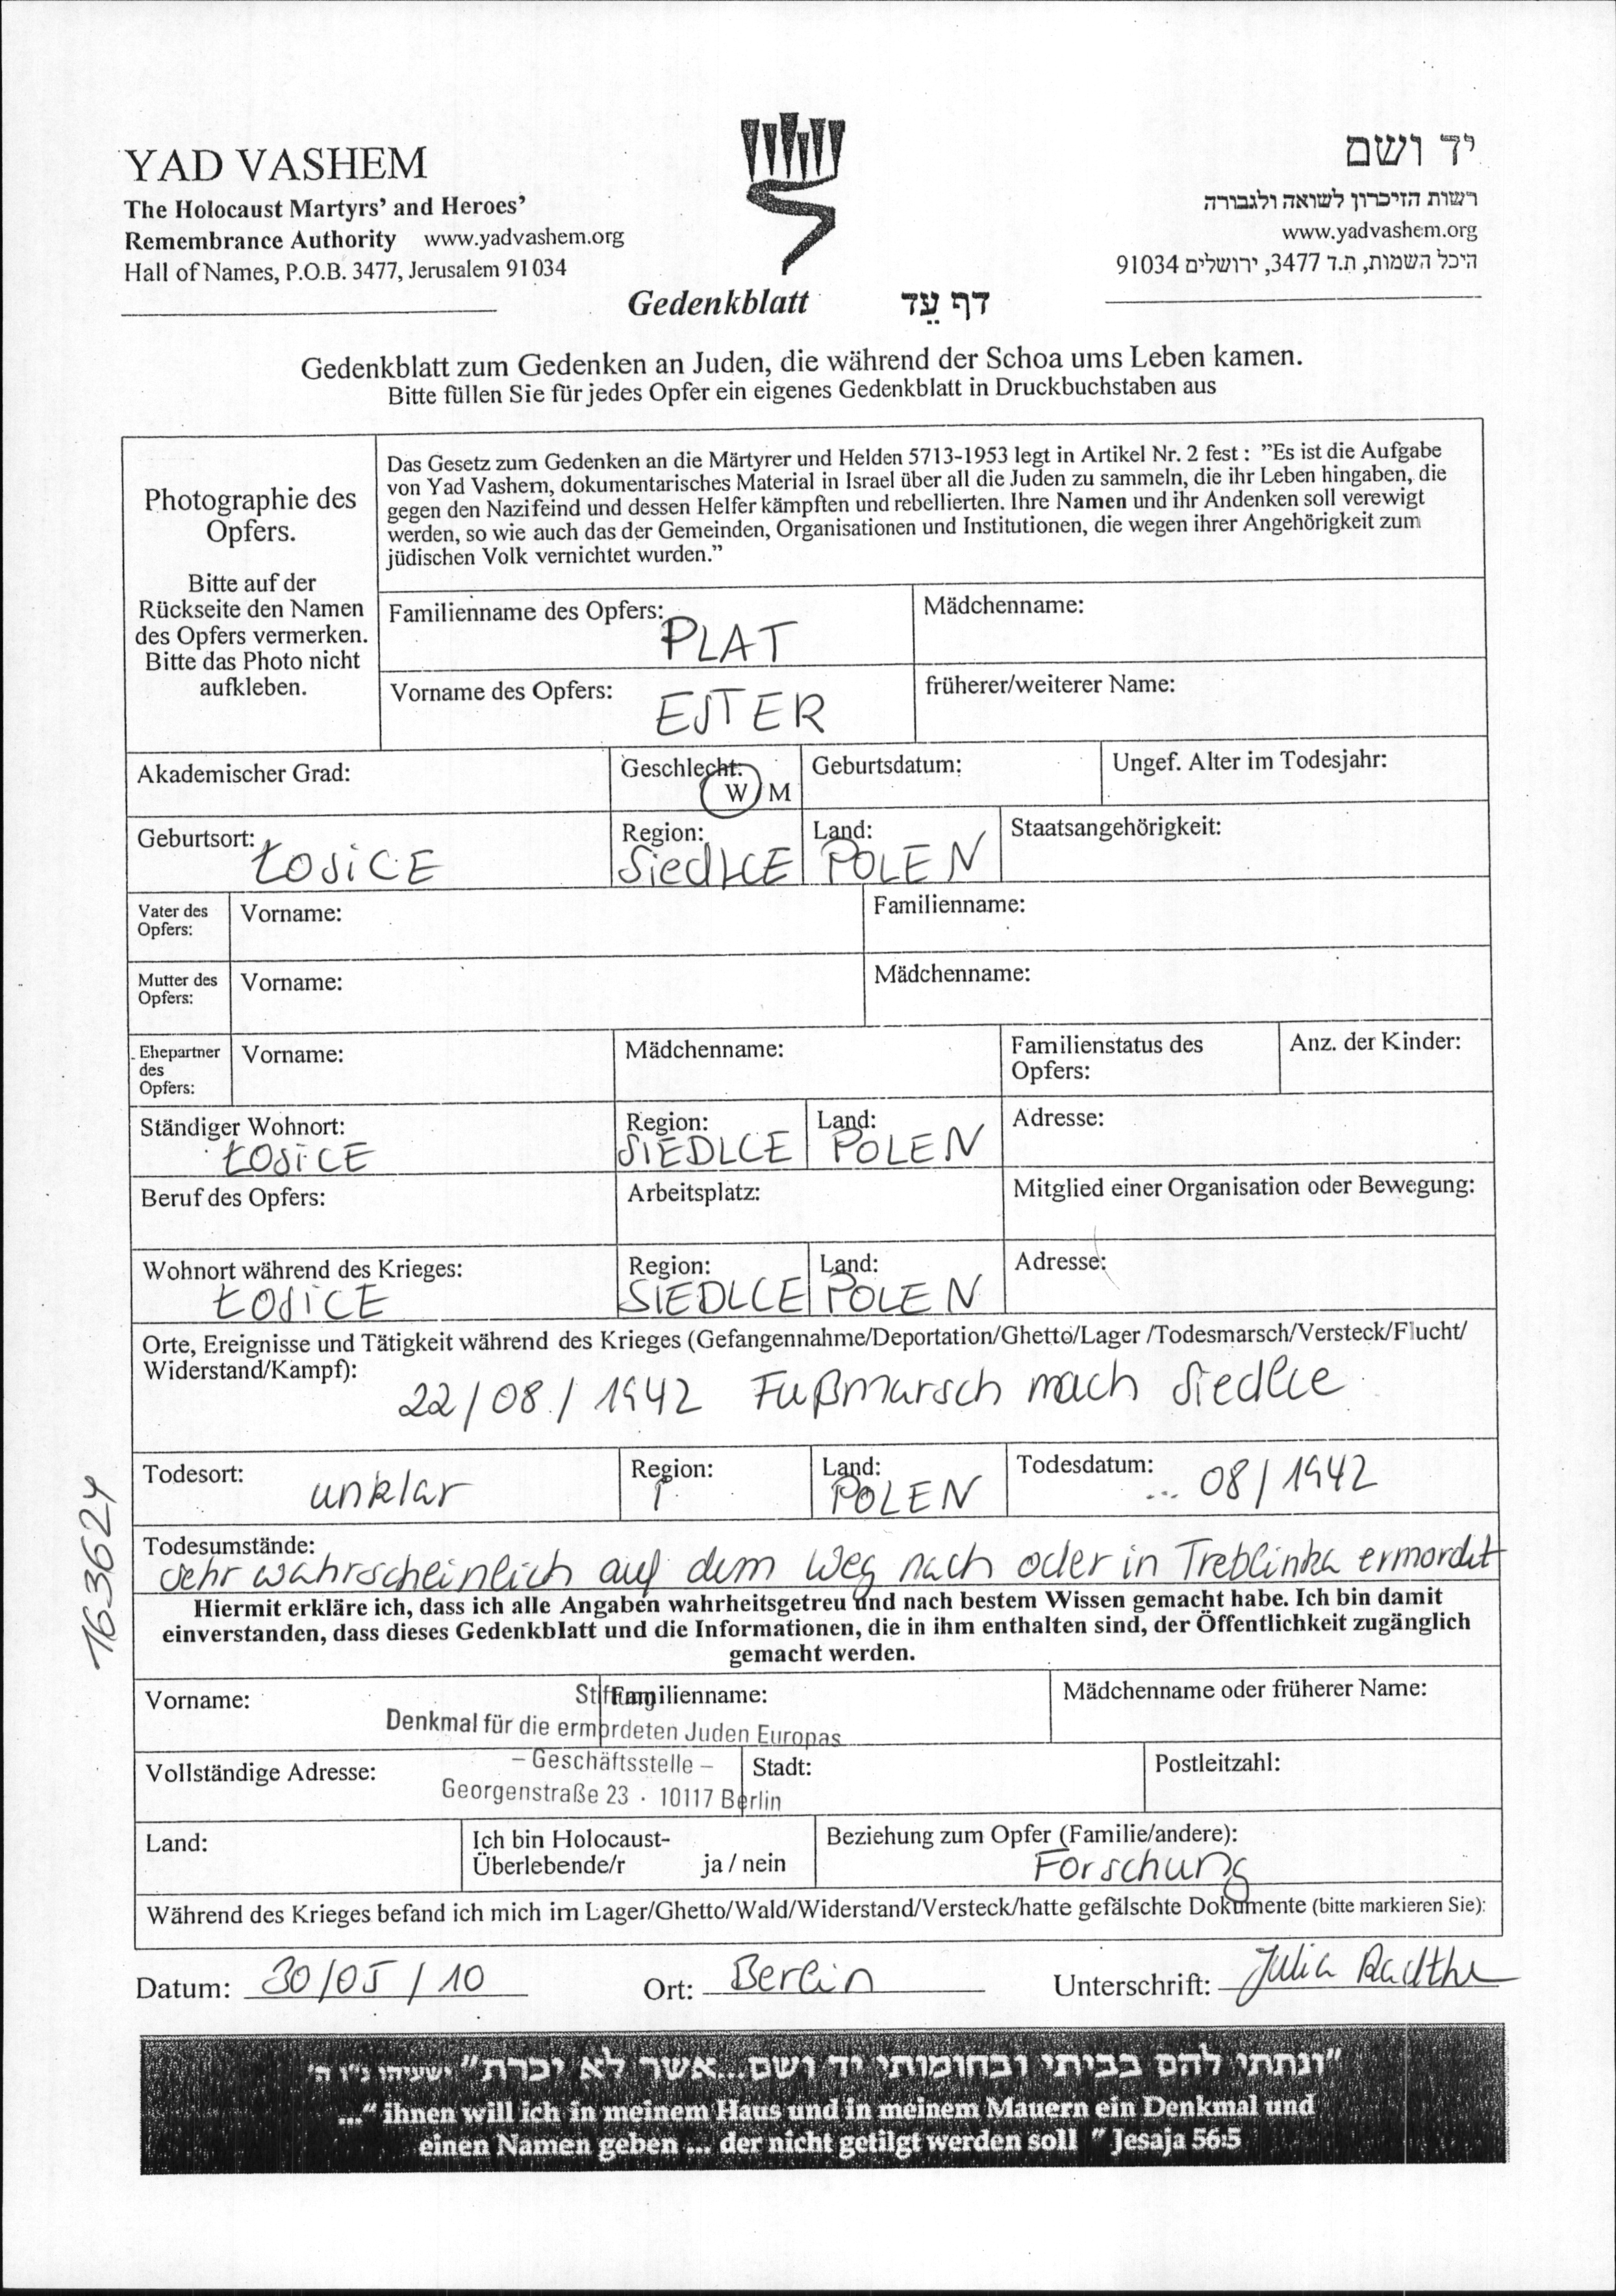 YAD VASHEM
The Holocaust Martyrs' and Heroes'
Remembrance Authority www.yadvashem.org
Hall of Names, P.O.B. 3477, Jerusalem 91034
יד ושם
רשות הזיכרון לשואה ולגבורה
www.yadvashem.org
היכל השמות, ת.ד 3477, ירושלים 91034
Gedenkblatt דף עֵד
Gedenkblatt zum Gedenken an Juden, die während der Schoa ums Leben kamen.
Bitte füllen Sie für jedes Opfer ein eigenes Gedenkblatt in Druckbuchstaben aus
Photographie des
Opfers.
Bitte auf der
Rückseite den Namen
des Opfers vermerken.
Bitte das Photo nicht
aufkleben.
Das Gesetz zum Gedenken an die Märtyrer und Helden 5713-1953 legt in Artikel Nr. 2 fest : "Es ist die Aufgabe
von Yad Vashem, dokumentarisches Material in Israel über all die Juden zu sammeln, die ihr Leben hingaben, die
gegen den Nazifeind und dessen Helfer kämpften und rebellierten. Ihre Namen und ihr Andenken soll verewigt
werden, so wie auch das der Gemeinden, Organisationen und Institutionen, die wegen ihrer Angehörigkeit zum
jüdischen Volk vernichtet wurden."
Familienname des Opfers: PLAT Mädchenname:
Vorname des Opfers: ESTER früherer/weiterer Name:
Akademischer Grad: Geschlecht: W / M Geburtsdatum: Ungef. Alter im Todesjahr:
Geburtsort: ŁOSiCE Region: SiedLCE Land: POLEN Staatsangehörigkeit:
Vater des Opfers: Vorname: Familienname:
Mutter des Opfers: Vorname: Mädchenname:
Ehepartner des Opfers: Vorname: Mädchenname: Familienstatus des Opfers: Anz. der Kinder:
Ständiger Wohnort: ŁOSiCE Region: SIEDLCE Land: POLEN Adresse:
Beruf des Opfers: Arbeitsplatz: Mitglied einer Organisation oder Bewegung:
Wohnort während des Krieges: ŁOSiCE Region: SIEDLCE Land: POLEN Adresse:
Orte, Ereignisse und Tätigkeit während des Krieges (Gefangennahme/Deportation/Ghetto/Lager /Todesmarsch/Versteck/Flucht/
Widerstand/Kampf):
22/08/1942 Fußmarsch nach Siedlce
Todesort: unklar Region: Land: POLEN Todesdatum: ... 08/1942
Todesumstände:
sehr wahrscheinlich auf dem Weg nach oder in Treblinka ermordet
163624
Hiermit erkläre ich, dass ich alle Angaben wahrheitsgetreu und nach bestem Wissen gemacht habe. Ich bin damit
einverstanden, dass dieses Gedenkblatt und die Informationen, die in ihm enthalten sind, der Öffentlichkeit zugänglich
gemacht werden.
Vorname: Familienname: Mädchenname oder früherer Name:
Stiftung
Denkmal für die ermordeten Juden Europas
– Geschäftsstelle –
Georgenstraße 23 · 10117 Berlin
Vollständige Adresse: Stadt: Postleitzahl:
Land: Ich bin Holocaust-
Überlebende/r ja / nein Beziehung zum Opfer (Familie/andere): Forschung
Während des Krieges befand ich mich im Lager/Ghetto/Wald/Widerstand/Versteck/hatte gefälschte Dokumente (bitte markieren Sie):
Datum: 30/05/10 Ort: Berlin Unterschrift: Julia Radtke
"ונתתי להם בביתי ובחומותי יד ושם...אשר לא יכרת" ישעיהו נ"ו ה'
..." ihnen will ich in meinem Haus und in meinem Mauern ein Denkmal und
einen Namen geben ... der nicht getilgt werden soll " Jesaja 56:5